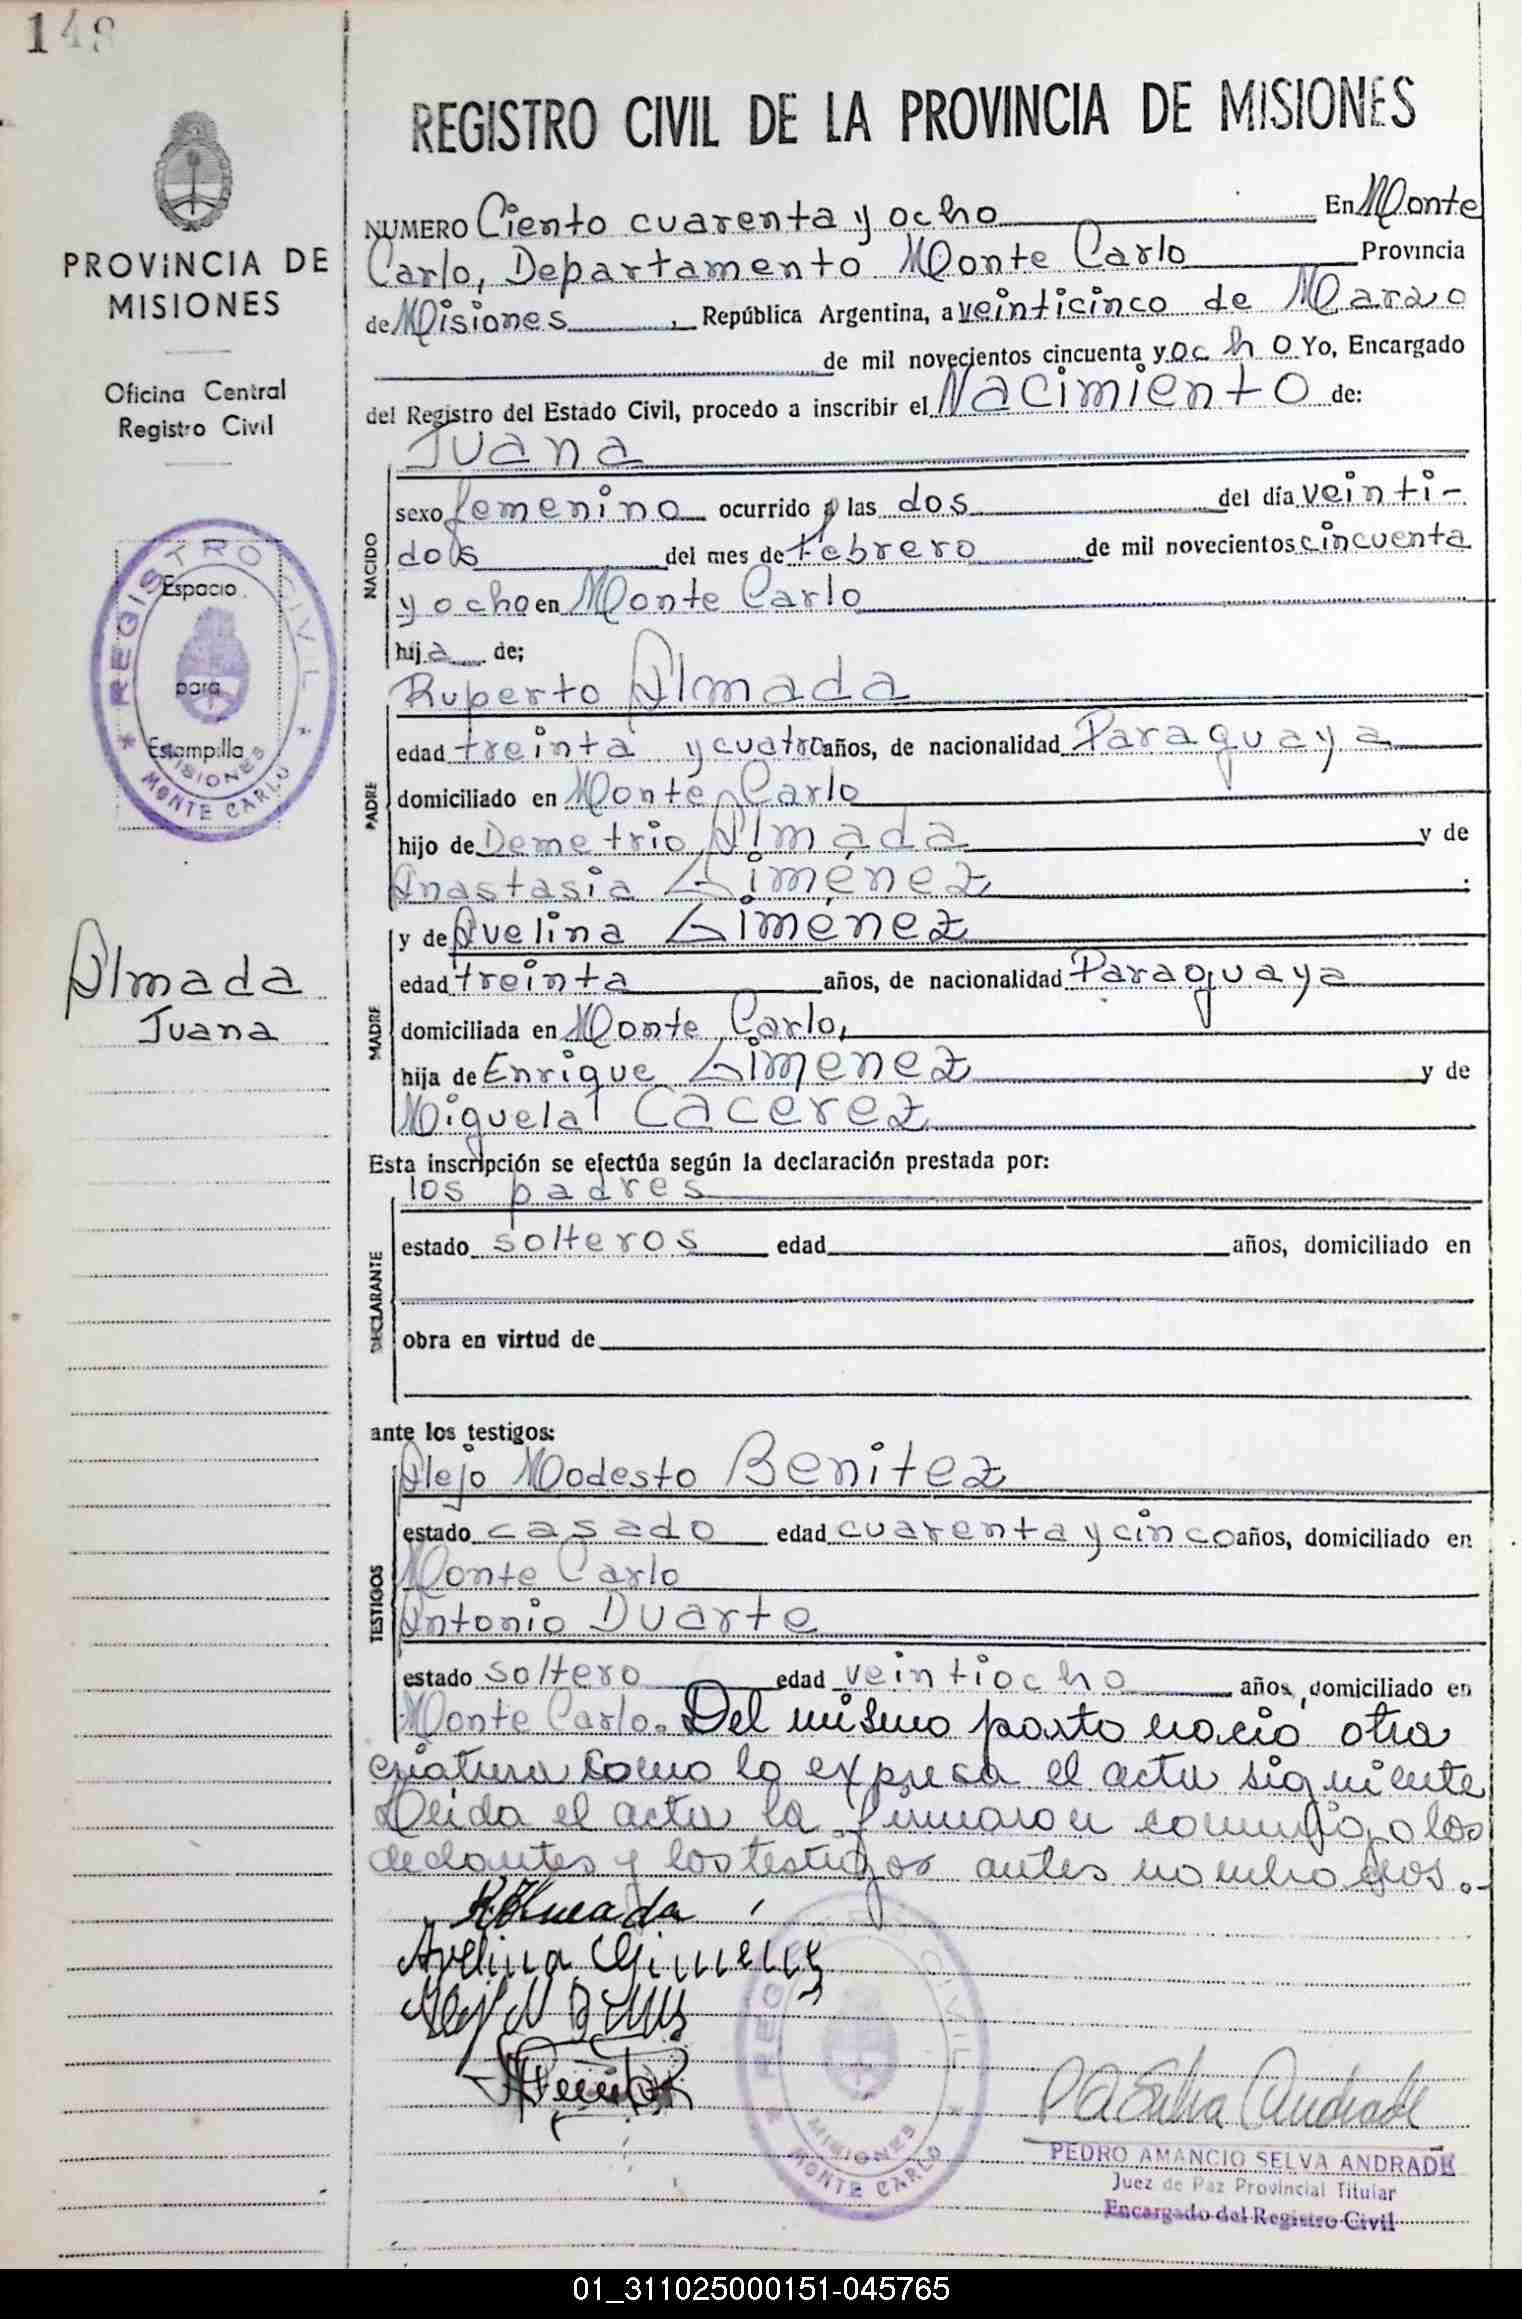 148
PROVINCIA DE
MISIONES
Oficina Central
Registro Civil
REGISTRO CIVIL
Espacio
para
Estampilla
MISIONES
MONTE CARLO
Almada
Juana
REGISTRO CIVIL DE LA PROVINCIA DE MISIONES
NUMERO Ciento cuarenta y ocho En Monte
Carlo, Departamento Monte Carlo Provincia
de Misiones, República Argentina, a veinticinco de Marzo
de mil novecientos cincuenta y ocho Yo, Encargado
del Registro del Estado Civil, procedo a inscribir el Nacimiento de:
NACIDO
Juana
sexo femenino ocurrido a las dos del día veinti-
dos del mes de Febrero de mil novecientos cincuenta
y ocho en Monte Carlo
hija de;
PADRE
Ruperto Almada
edad treinta y cuatro años, de nacionalidad Paraguaya
domiciliado en Monte Carlo
hijo de Demetrio Almada y de
Anastasia Giménez.
MADRE
y de Avelina Giménez
edad treinta años, de nacionalidad Paraguaya
domiciliada en Monte Carlo,
hija de Enrique Gimenez y de
Miguela Cacerez
Esta inscripción se efectúa según la declaración prestada por:
DECLARANTE
los padres
estado solteros edad años, domiciliado en
obra en virtud de
ante los testigos:
TESTIGOS
Alejo Modesto Benitez
estado casado edad cuarenta y cinco años, domiciliado en
Monte Carlo
Antonio Duarte
estado soltero edad veintiocho años, domiciliado en
Monte Carlo. Del mismo parto nacio otra
criatura como lo expresa el acta siguiente
Leida el acta la firmaron conmigo, los
declantes y los testigos antes nombrados.-
R Almada
Avelina Gimenez
REGISTRO CIVIL
MISIONES
MONTE CARLO
P A Selva Andrade
PEDRO AMANCIO SELVA ANDRADE
Juez de Paz Provincial Titular
Encargado del Registro Civil
01_311025000151-045765